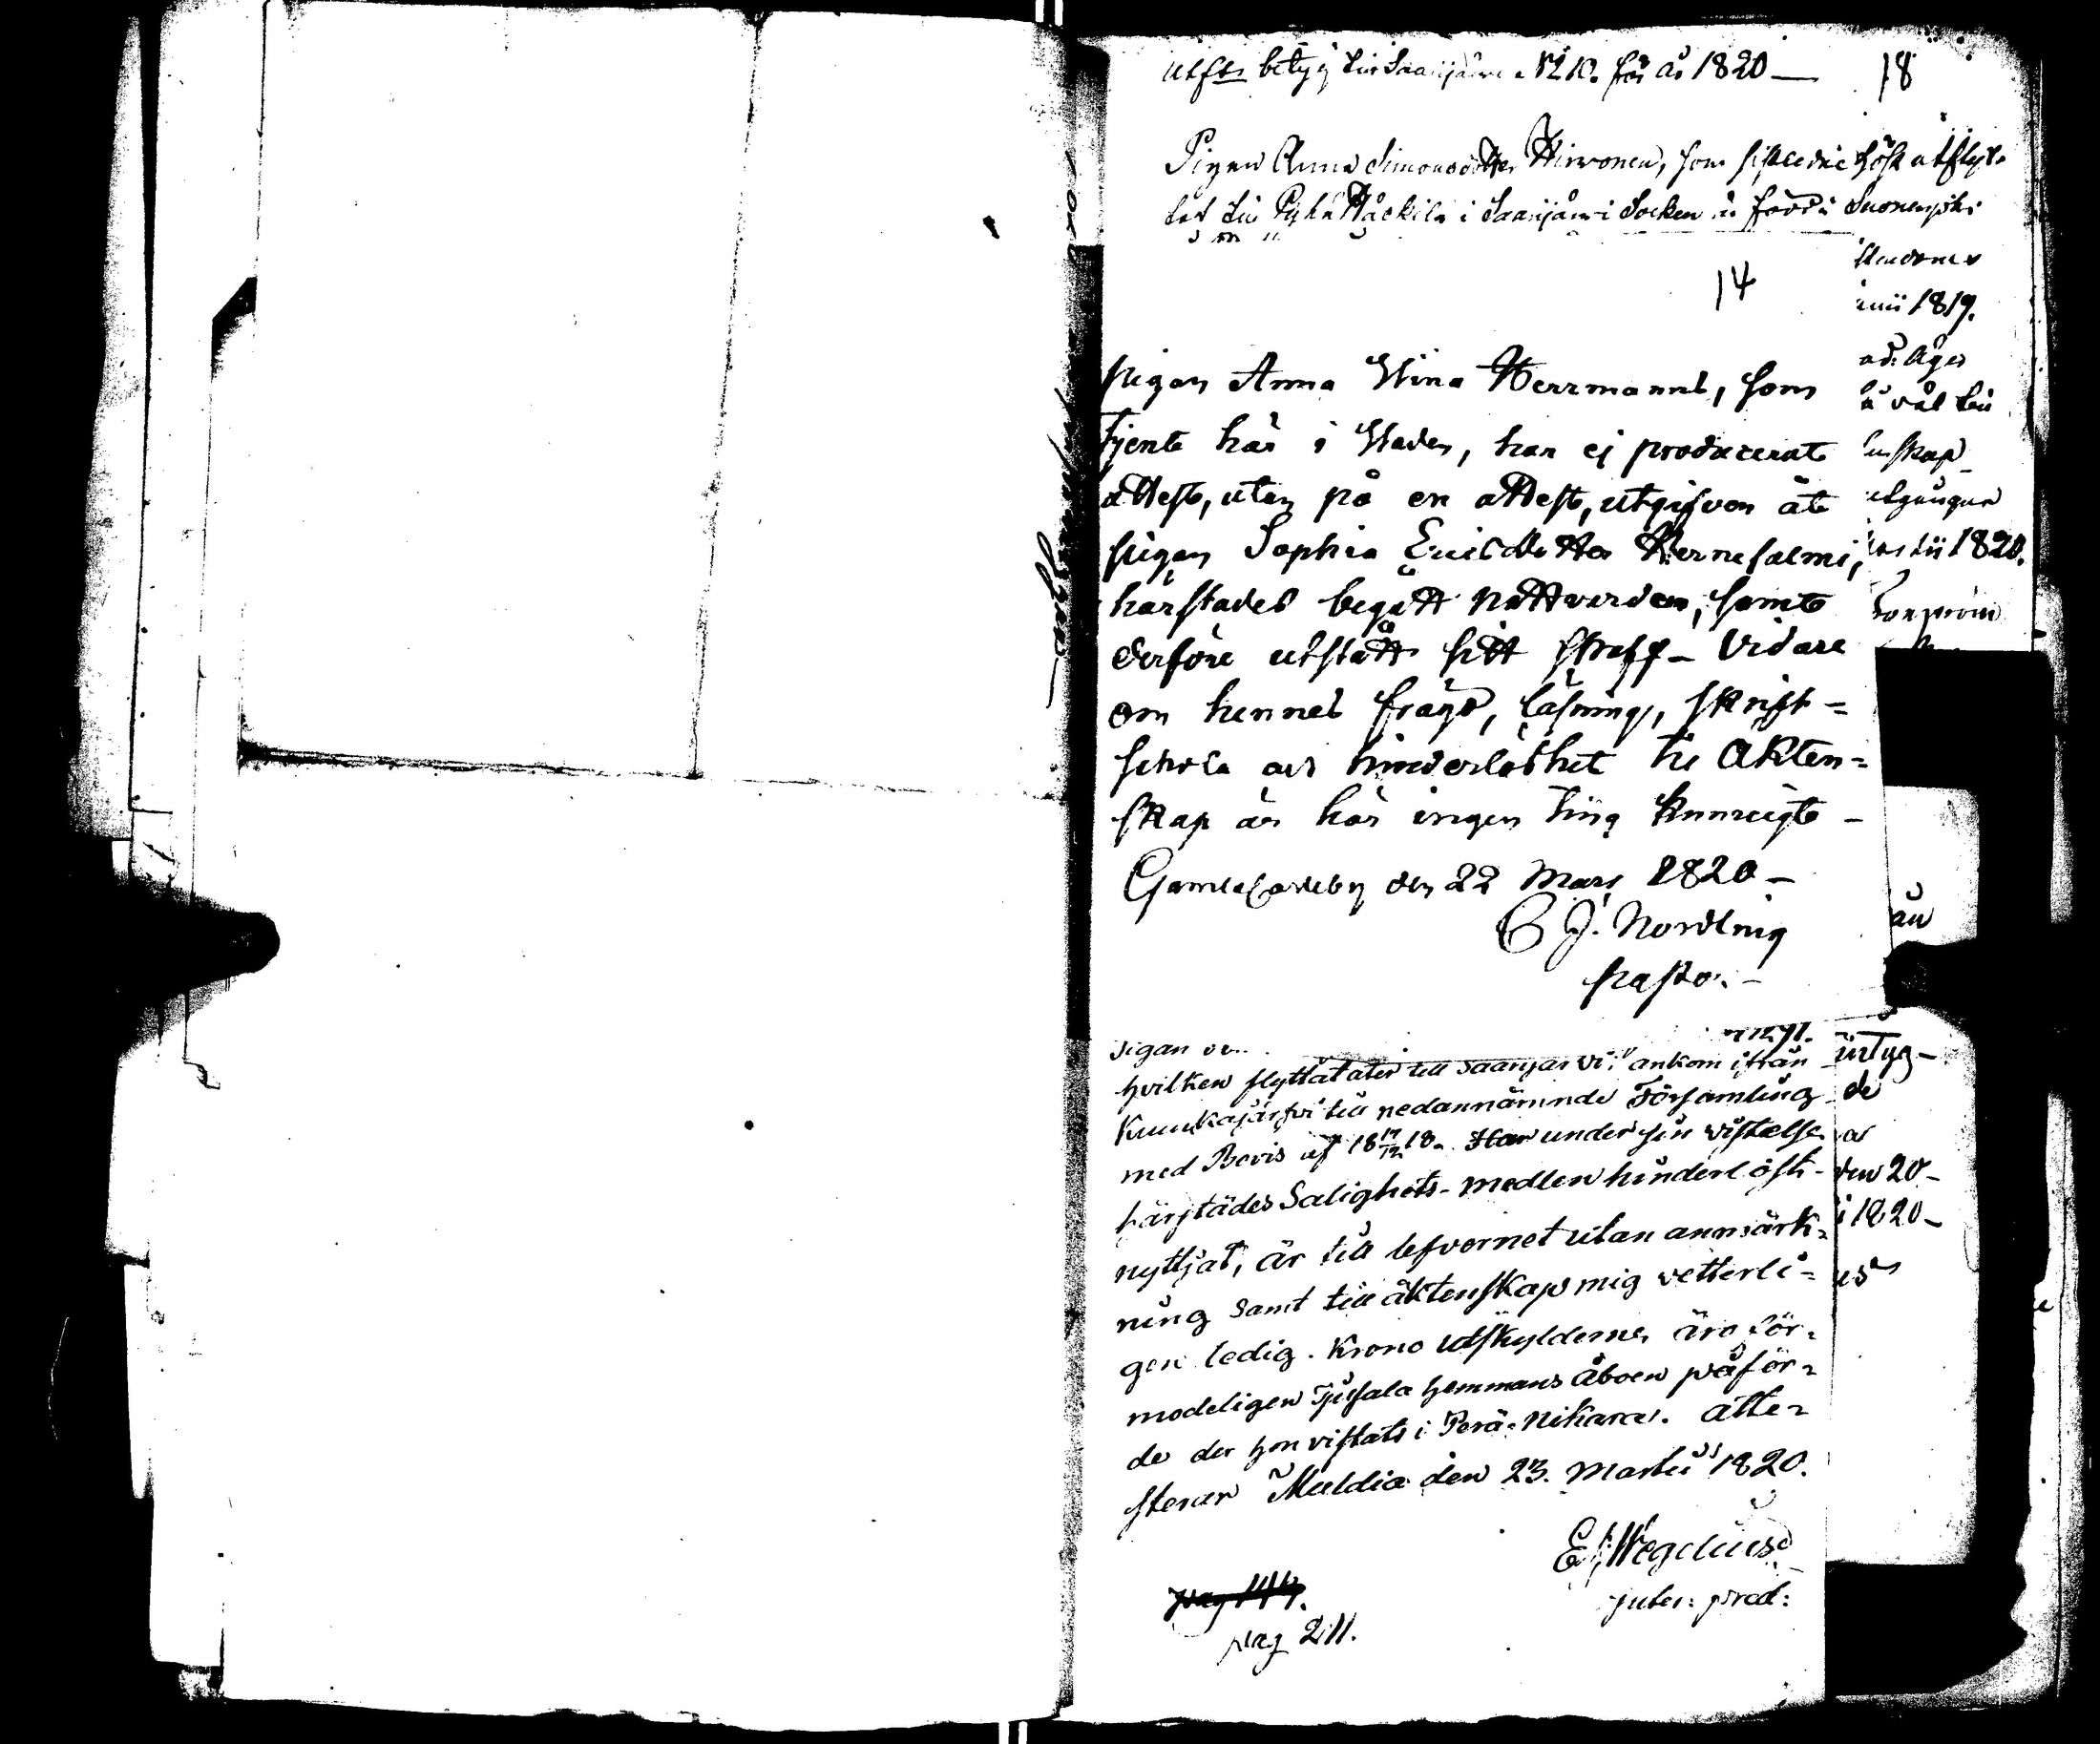 Utfl. betyg till Saarijärvi N:o 10. för år 1820 —
18
Pigan Anna Simonsdotter Hirvonen, som sistledne höst utflyt-
tat till Pyhä Häckilä i Saarijärvi Socken är född i
14
1819.
Pigan Anna Stina Herrmanns, som
tjente här i Staden, har ej producerat
attest, utan på en attest, utgifven åt
pigan Sophia Ericsdotter Kernesalmi,
härstädes begått Nattvarden, samt
derföre utstått sitt straff – Vidare
om hennes frägd, läsning, skrift=
schola och hinderlöshet til Äkten=
skap är här ingen ting kunnigt –
Gamlacarleby den 22 Mars 1820 –
C J. Nordling
pastor. –
enskap
utgångna
1820.
Pigan
hvilken flyttat åter till Saarijärvi, ankom ifrån
Kuukajärfvi till nedannämnde Församling
med Bevis af 18 17/12 18. Har under sin vistelse
härstädes Salighets-medlen hinderlöst
nyttjat, är till lefvernet utan anmärk=
ning samt till äktenskap mig vetterli=
gen ledig. Krono utskylderne äro för=
modeligen Tjusala hemmans åboen påför=
de der hon vistats i Perä-Nikara. atte=
sterar Muldia den 23. Martii 1820.
E J Wegelius
pag 211.
intyg –
de
den 20 –
1820 –